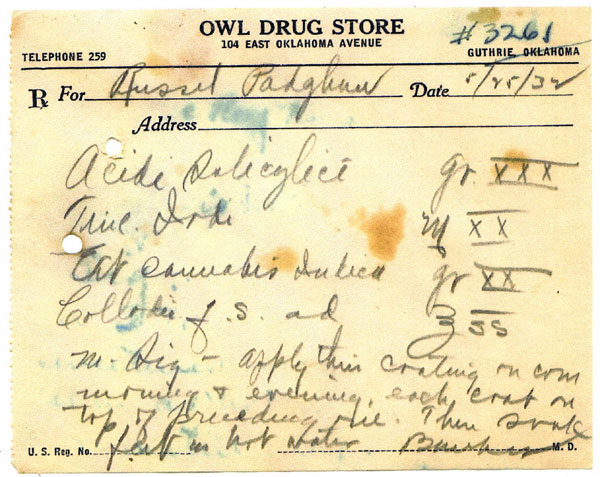 OWL DRUG STORE
104 EAST OKLAHOMA AVENUE
#3261
TELEPHONE 259
GUTHRIE, OKLAHOMA
℞ For Russel Date 5/25/32
Address
Acidi Salicylici gr. XXX
Tinc. Iodi ♏ XX
Ext Cannabis Indica gr XX
Collodii q.s. ad ʒ ss
M. Sig - apply thin coating on corn
morning & evening, each coat on
top of preceeding one. Then soak
feet in hot water
U. S. Reg. No. M. D.